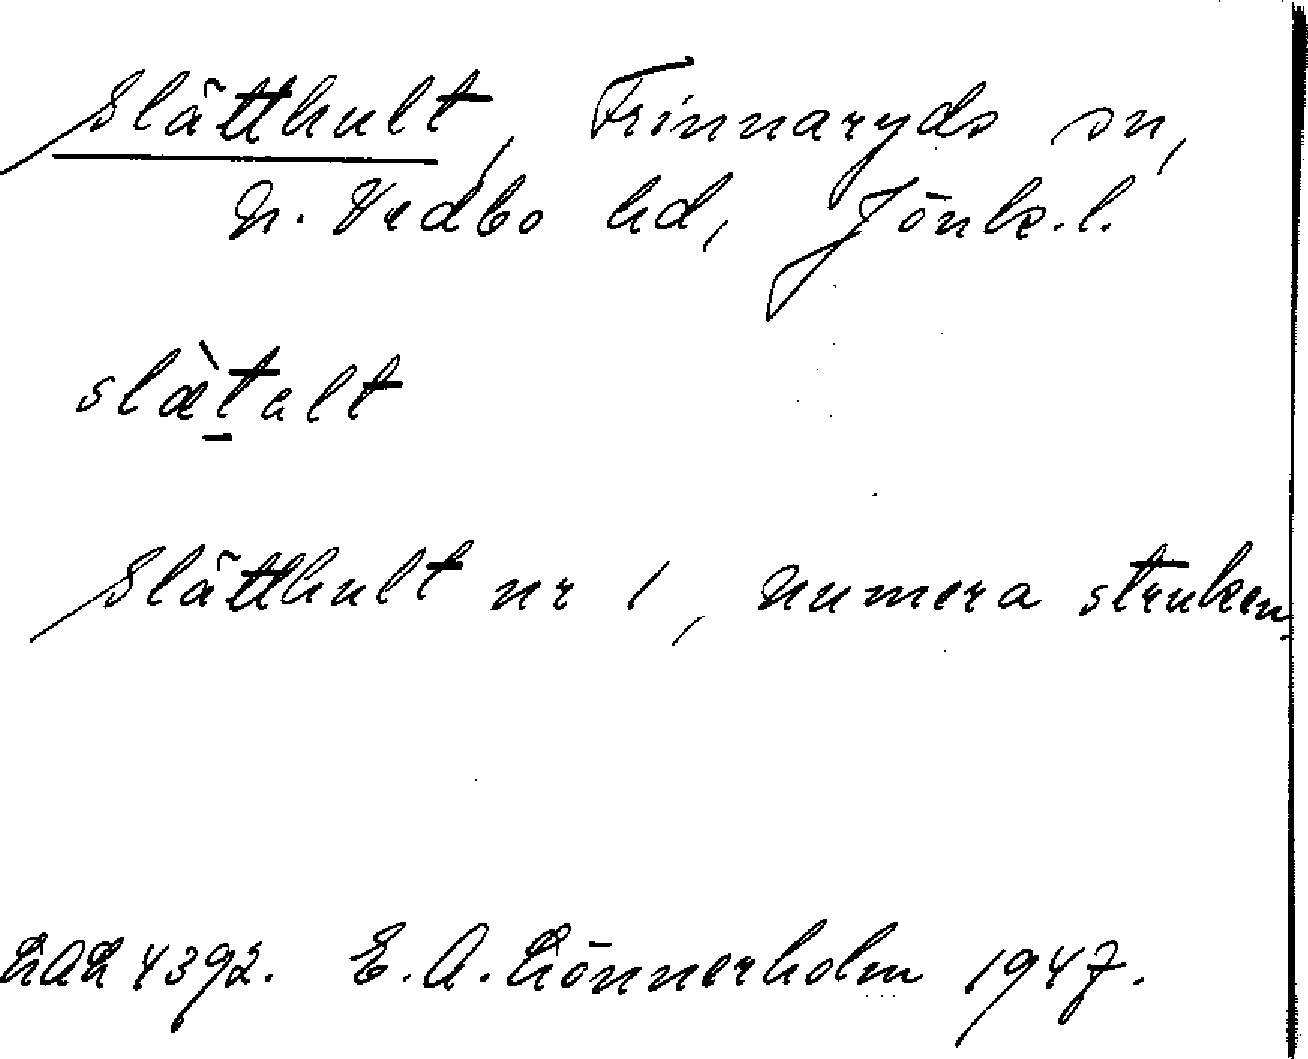 Slätthult, Frinnaryds sn,
N. Vedbo hd, Jönk. l.
slæ̀talt
Slätthult nr 1, numera struken.
4392. E. A. Lönnerholm 1947.